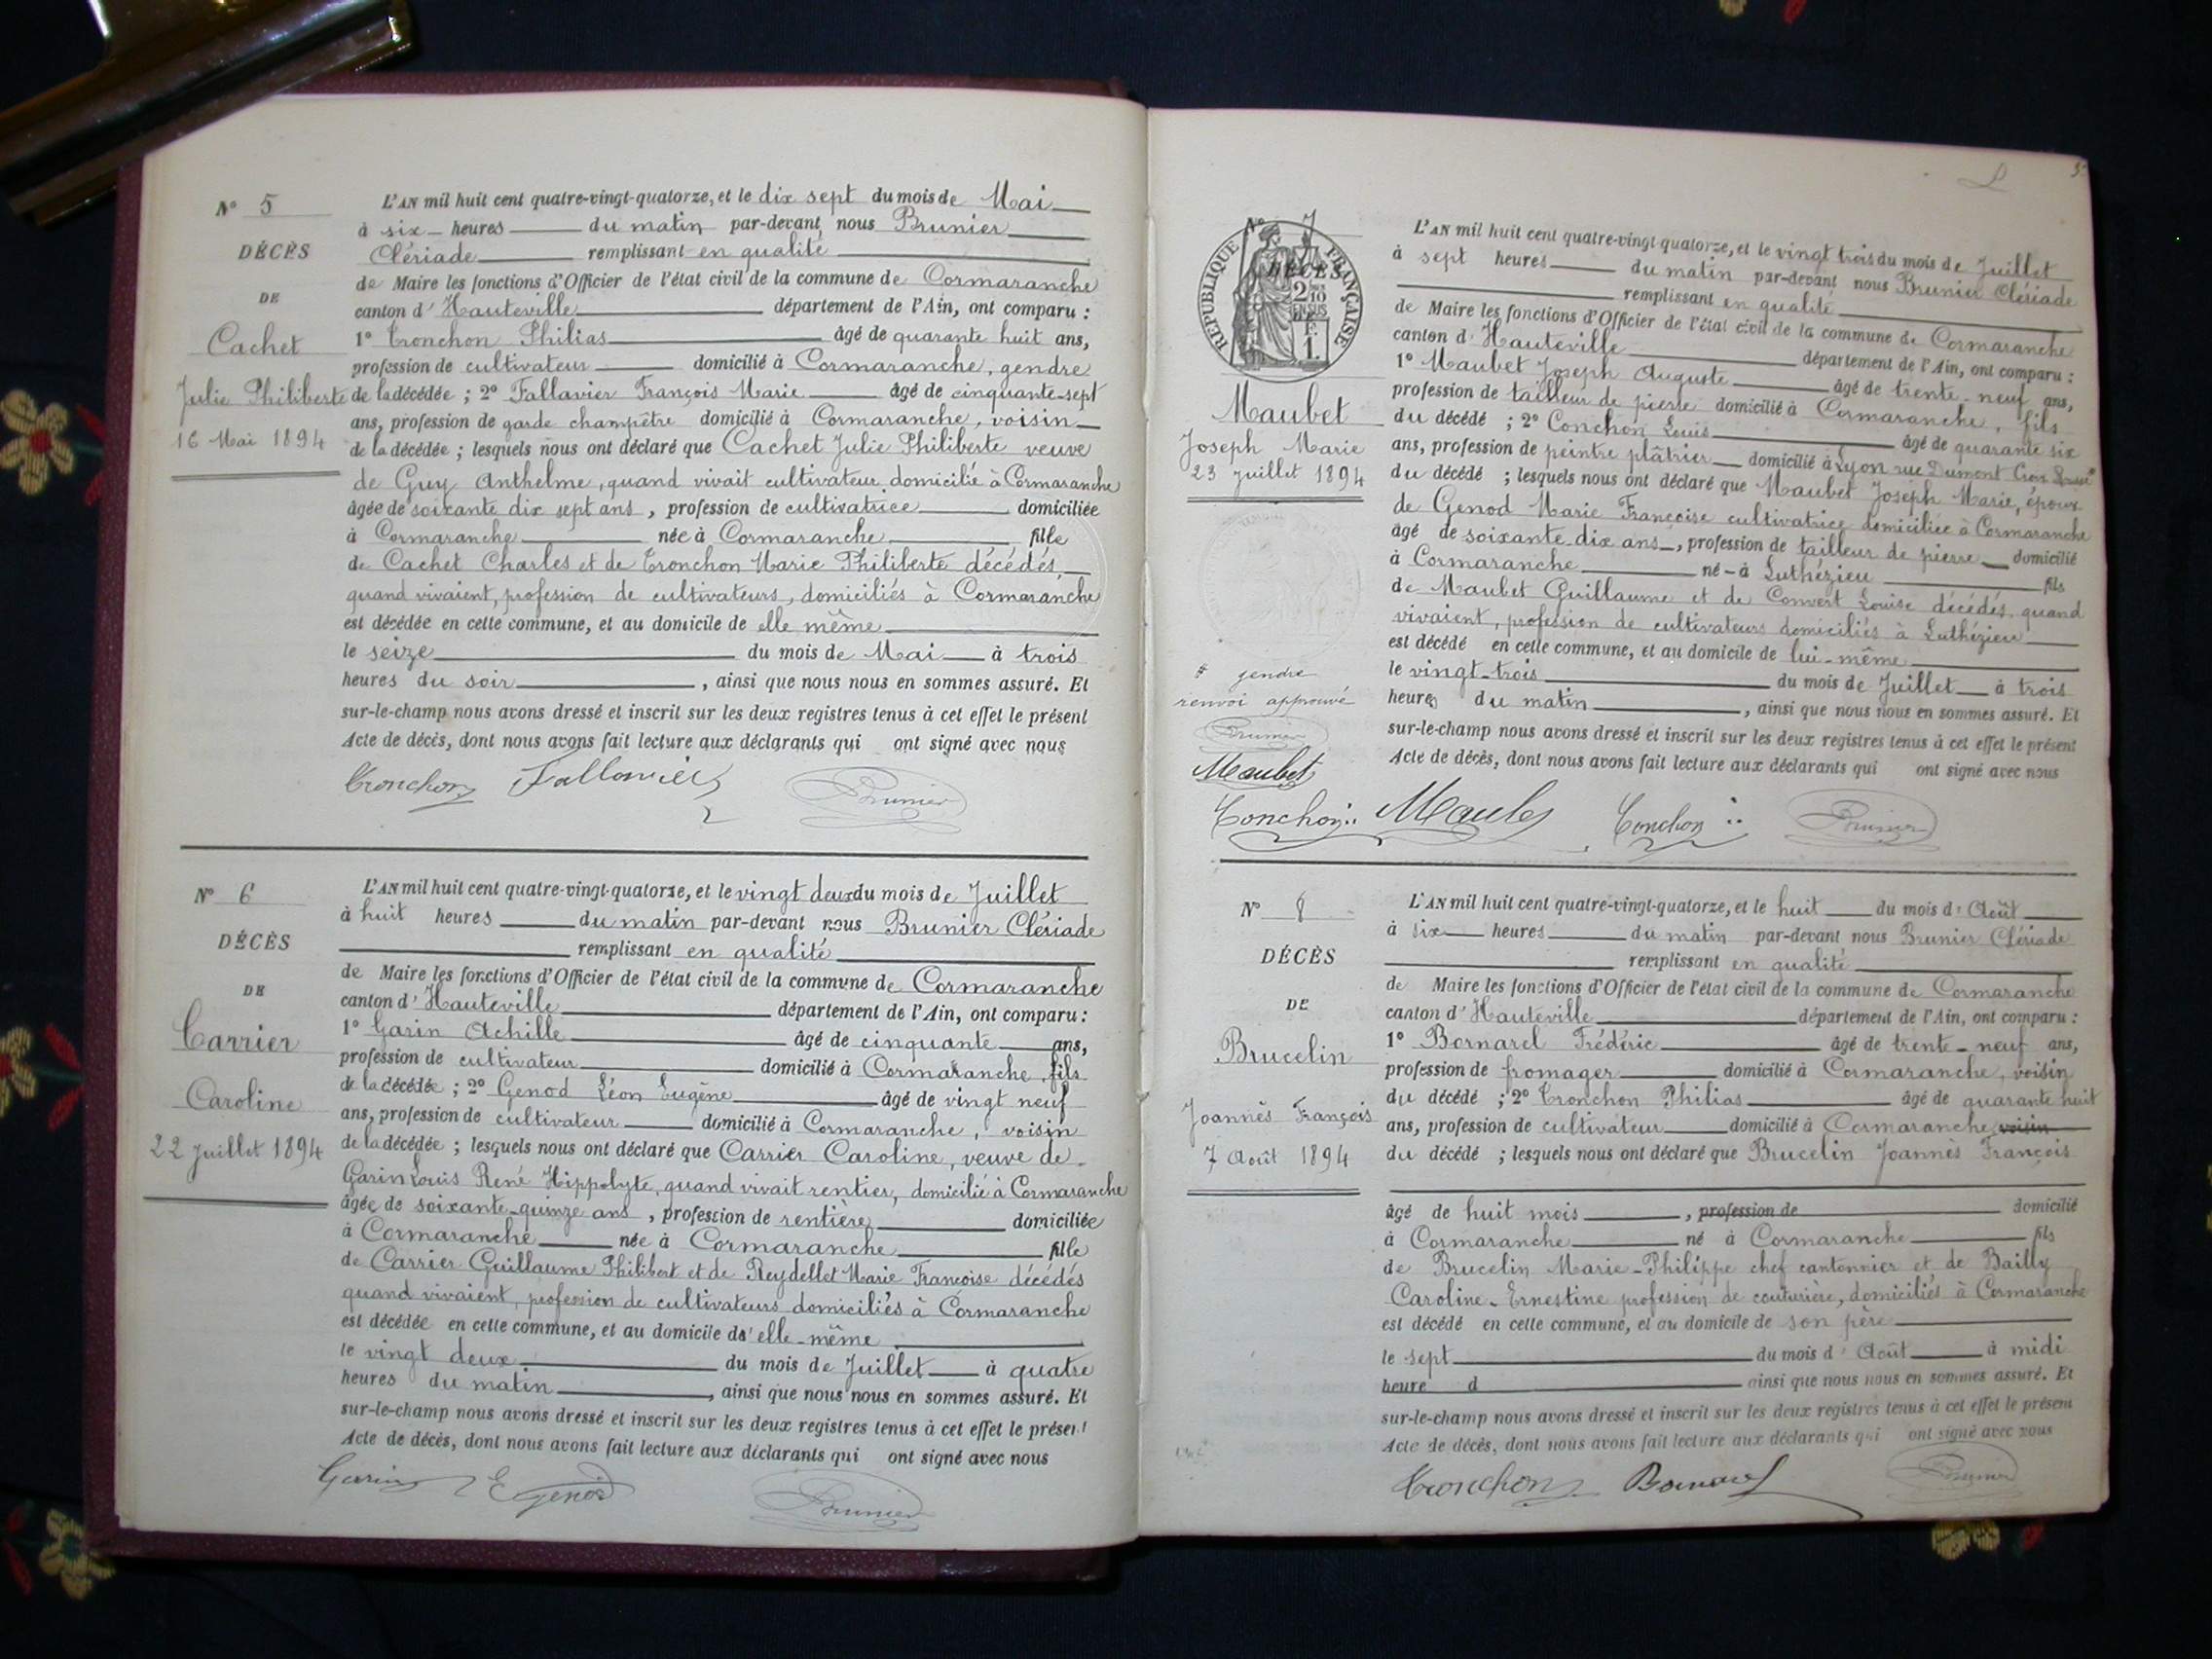 N° 5
DÉCÈS
DE
Cachet
Julie Philiberte
16 Mai 1894
L'AN mil huit cent quatre-vingt-quatorze, et le dix sept du mois de Mai
à six heures du matin par-devant nous Brunier
Clériade remplissant en qualité
de Maire les fonctions d'Officier de l'état civil de la commune de Cormaranche
canton d'Hauteville département de l'Ain, ont comparu :
1° Tronchon Philias âgé de quarante huit ans,
profession de cultivateur domicilié à Cormaranche, gendre
de la décédée ; 2° Fallavier François Marie âgé de cinquante-sept
ans, profession de garde champêtre domicilié à Cormaranche, voisin
de la décédée ; lesquels nous ont déclaré que Cachet Julie Philiberte veuve
de Guy Anthelme, quand vivait cultivateur domicilié à Cormaranche
âgée de soixante dix sept ans, profession de cultivatrice domiciliée
à Cormaranche née à Cormaranche fille
de Cachet Charles et de Tronchon Marie Philiberte décédés,
quand vivaient, profession de cultivateurs, domiciliés à Cormaranche
est décédée en cette commune, et au domicile de elle même
le seize du mois de Mai à trois
heures du soir, ainsi que nous nous en sommes assuré. Et
sur-le-champ nous avons dressé et inscrit sur les deux registres tenus à cet effet le présent
Acte de décès, dont nous avons fait lecture aux déclarants qui ont signé avec nous
Tronchon Fallavier Brunier
N° 6
DÉCÈS
DE
Carrier
Caroline
22 Juillet 1894
L'AN mil huit cent quatre-vingt-quatorze, et le vingt deux du mois de Juillet
à huit heures du matin par-devant nous Brunier Clériade
remplissant en qualité
de Maire les fonctions d'Officier de l'état civil de la commune de Cormaranche
canton d'Hauteville département de l'Ain, ont comparu :
1° Garin Achille âgé de cinquante ans,
profession de cultivateur domicilié à Cormaranche, fils
de la décédée ; 2° Genod Léon Eugène âgé de vingt neuf
ans, profession de cultivateur domicilié à Cormaranche, voisin
de la décédée ; lesquels nous ont déclaré que Carrier Caroline, veuve de
Garin Louis René Hippolyte, quand vivait rentier, domicilié à Cormaranche
âgée de soixante-quinze ans, profession de rentière domiciliée
à Cormaranche née à Cormaranche fille
de Carrier Guillaume Philibert et de Reydellet Marie Françoise décédés
quand vivaient, profession de cultivateurs domiciliés à Cormaranche
est décédée en cette commune, et au domicile d'elle-même
le vingt deux du mois de Juillet à quatre
heures du matin, ainsi que nous nous en sommes assuré. Et
sur-le-champ nous avons dressé et inscrit sur les deux registres tenus à cet effet le présent
Acte de décès, dont nous avons fait lecture aux déclarants qui ont signé avec nous
Garin E Genod Brunier
5
N° 7
RÉPUBLIQUE FRANÇAISE
DÉCÈS
2/10
EN SUS
1 F.
Maubet
Joseph Marie
23 Juillet 1894
L'AN mil huit cent quatre-vingt-quatorze, et le vingt trois du mois de Juillet
à sept heures du matin par-devant nous Brunier Clériade
remplissant en qualité
de Maire les fonctions d'Officier de l'état civil de la commune de Cormaranche
canton d'Hauteville département de l'Ain, ont comparu :
1° Maubet Joseph Auguste âgé de trente-neuf ans,
profession de tailleur de pierre domicilié à Cormaranche, fils
du décédé ; 2° Conchon Louis âgé de quarante six
ans, profession de peintre plâtrier domicilié à Lyon rue Dumont Croix Rousse
du décédé ; lesquels nous ont déclaré que Maubet Joseph Marie, époux
de Genod Marie Françoise cultivatrice domiciliée à Cormaranche
âgé de soixante-dix ans, profession de tailleur de pierre domicilié
à Cormaranche né à Luthézieu fils
de Maubet Guillaume et de Convert Louise décédés, quand
vivaient, profession de cultivateurs domiciliés à Luthézieu
est décédé en cette commune, et au domicile de lui-même
le vingt-trois du mois de Juillet à trois
heures du matin, ainsi que nous nous en sommes assuré. Et
sur-le-champ nous avons dressé et inscrit sur les deux registres tenus à cet effet le présent
Acte de décès, dont nous avons fait lecture aux déclarants qui ont signé avec nous
gendre
renvoi approuvé
Brunier
Maubet
Conchon Maubet Conchon Brunier
N° 8
DÉCÈS
DE
Brucelin
Joannès François
7 Août 1894
L'AN mil huit cent quatre-vingt-quatorze, et le huit du mois d'Août
à six heures du matin par-devant nous Brunier Clériade
remplissant en qualité
de Maire les fonctions d'Officier de l'état civil de la commune de Cormaranche
canton d'Hauteville département de l'Ain, ont comparu :
1° Bornarel Frédéric âgé de trente-neuf ans,
profession de fromager domicilié à Cormaranche, voisin
du décédé ; 2° Tronchon Philias âgé de quarante huit
ans, profession de cultivateur domicilié à Cormaranche, voisin
du décédé ; lesquels nous ont déclaré que Brucelin Joannès François
âgé de huit mois, profession de domicilié
à Cormaranche né à Cormaranche fils
de Brucelin Marie-Philippe chef cantonnier et de Bailly
Caroline-Ernestine profession de couturière, domiciliés à Cormaranche
est décédé en cette commune, et au domicile de son père
le sept du mois d'Août à midi
heure d ainsi que nous nous en sommes assuré. Et
sur-le-champ nous avons dressé et inscrit sur les deux registres tenus à cet effet le présent
Acte de décès, dont nous avons fait lecture aux déclarants qui ont signé avec nous
Tronchon Bornarel Brunier